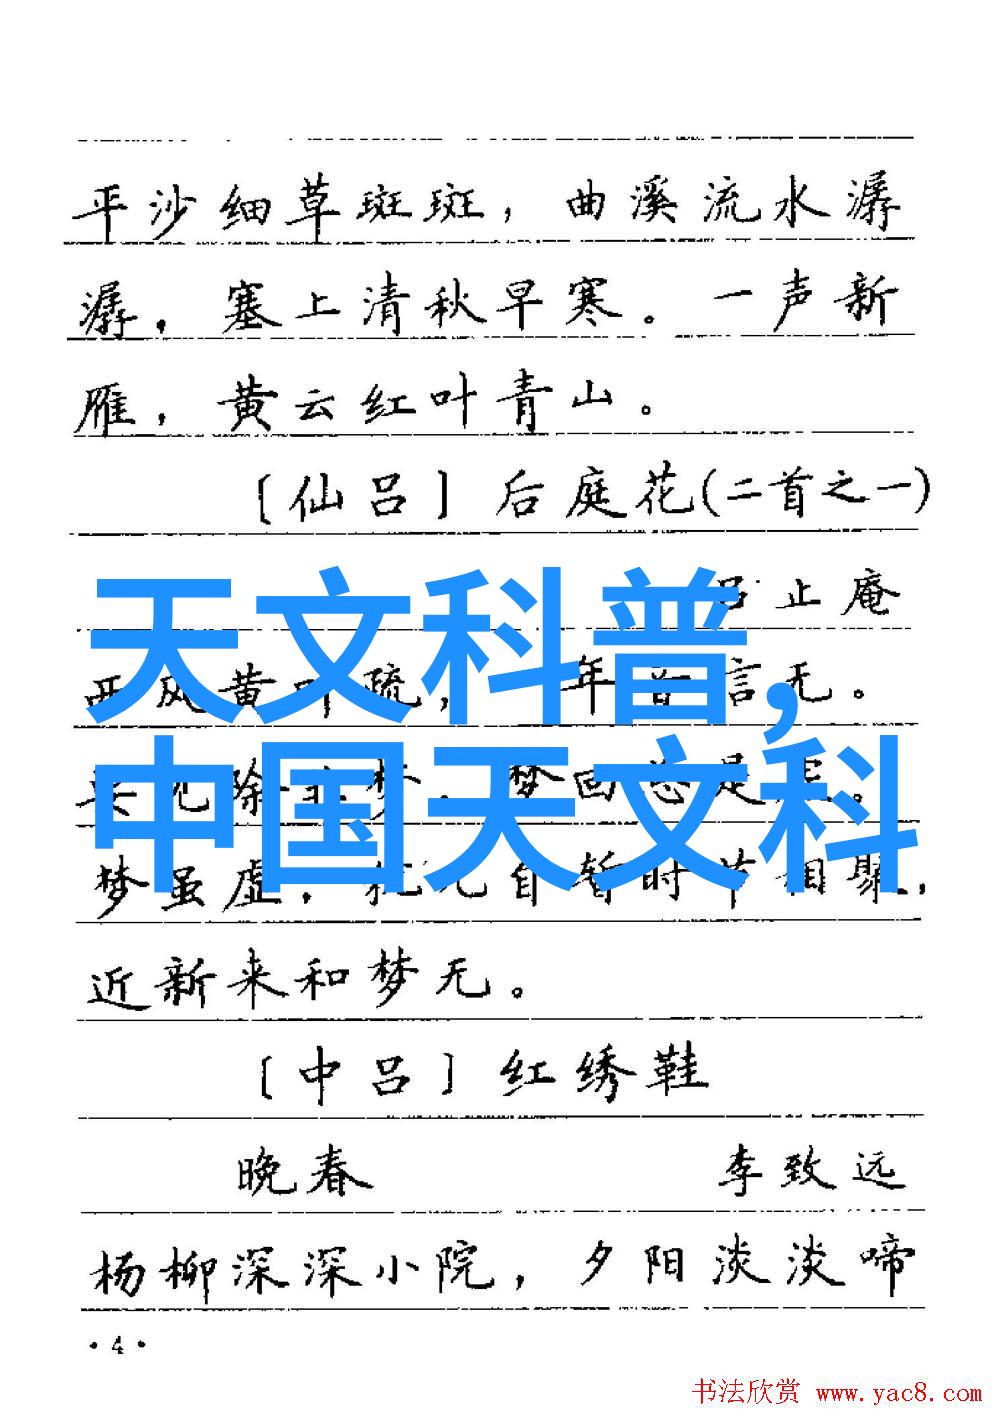 平沙细草斑斑，曲溪流水潺
潺，塞上清秋早寒。一声新
雁，黄云红叶青山。
〔仙吕〕后庭花(二首之一)
天文科普，
吕止庵
年音言无。
中国天文科
梦虽虚，犹兀自暂时节相聚，
近新来和梦无。
〔中吕〕红绣鞋
晚春 李致远
杨柳深深小院，夕阳淡淡啼
·4·
书法欣赏 www.yac8.com